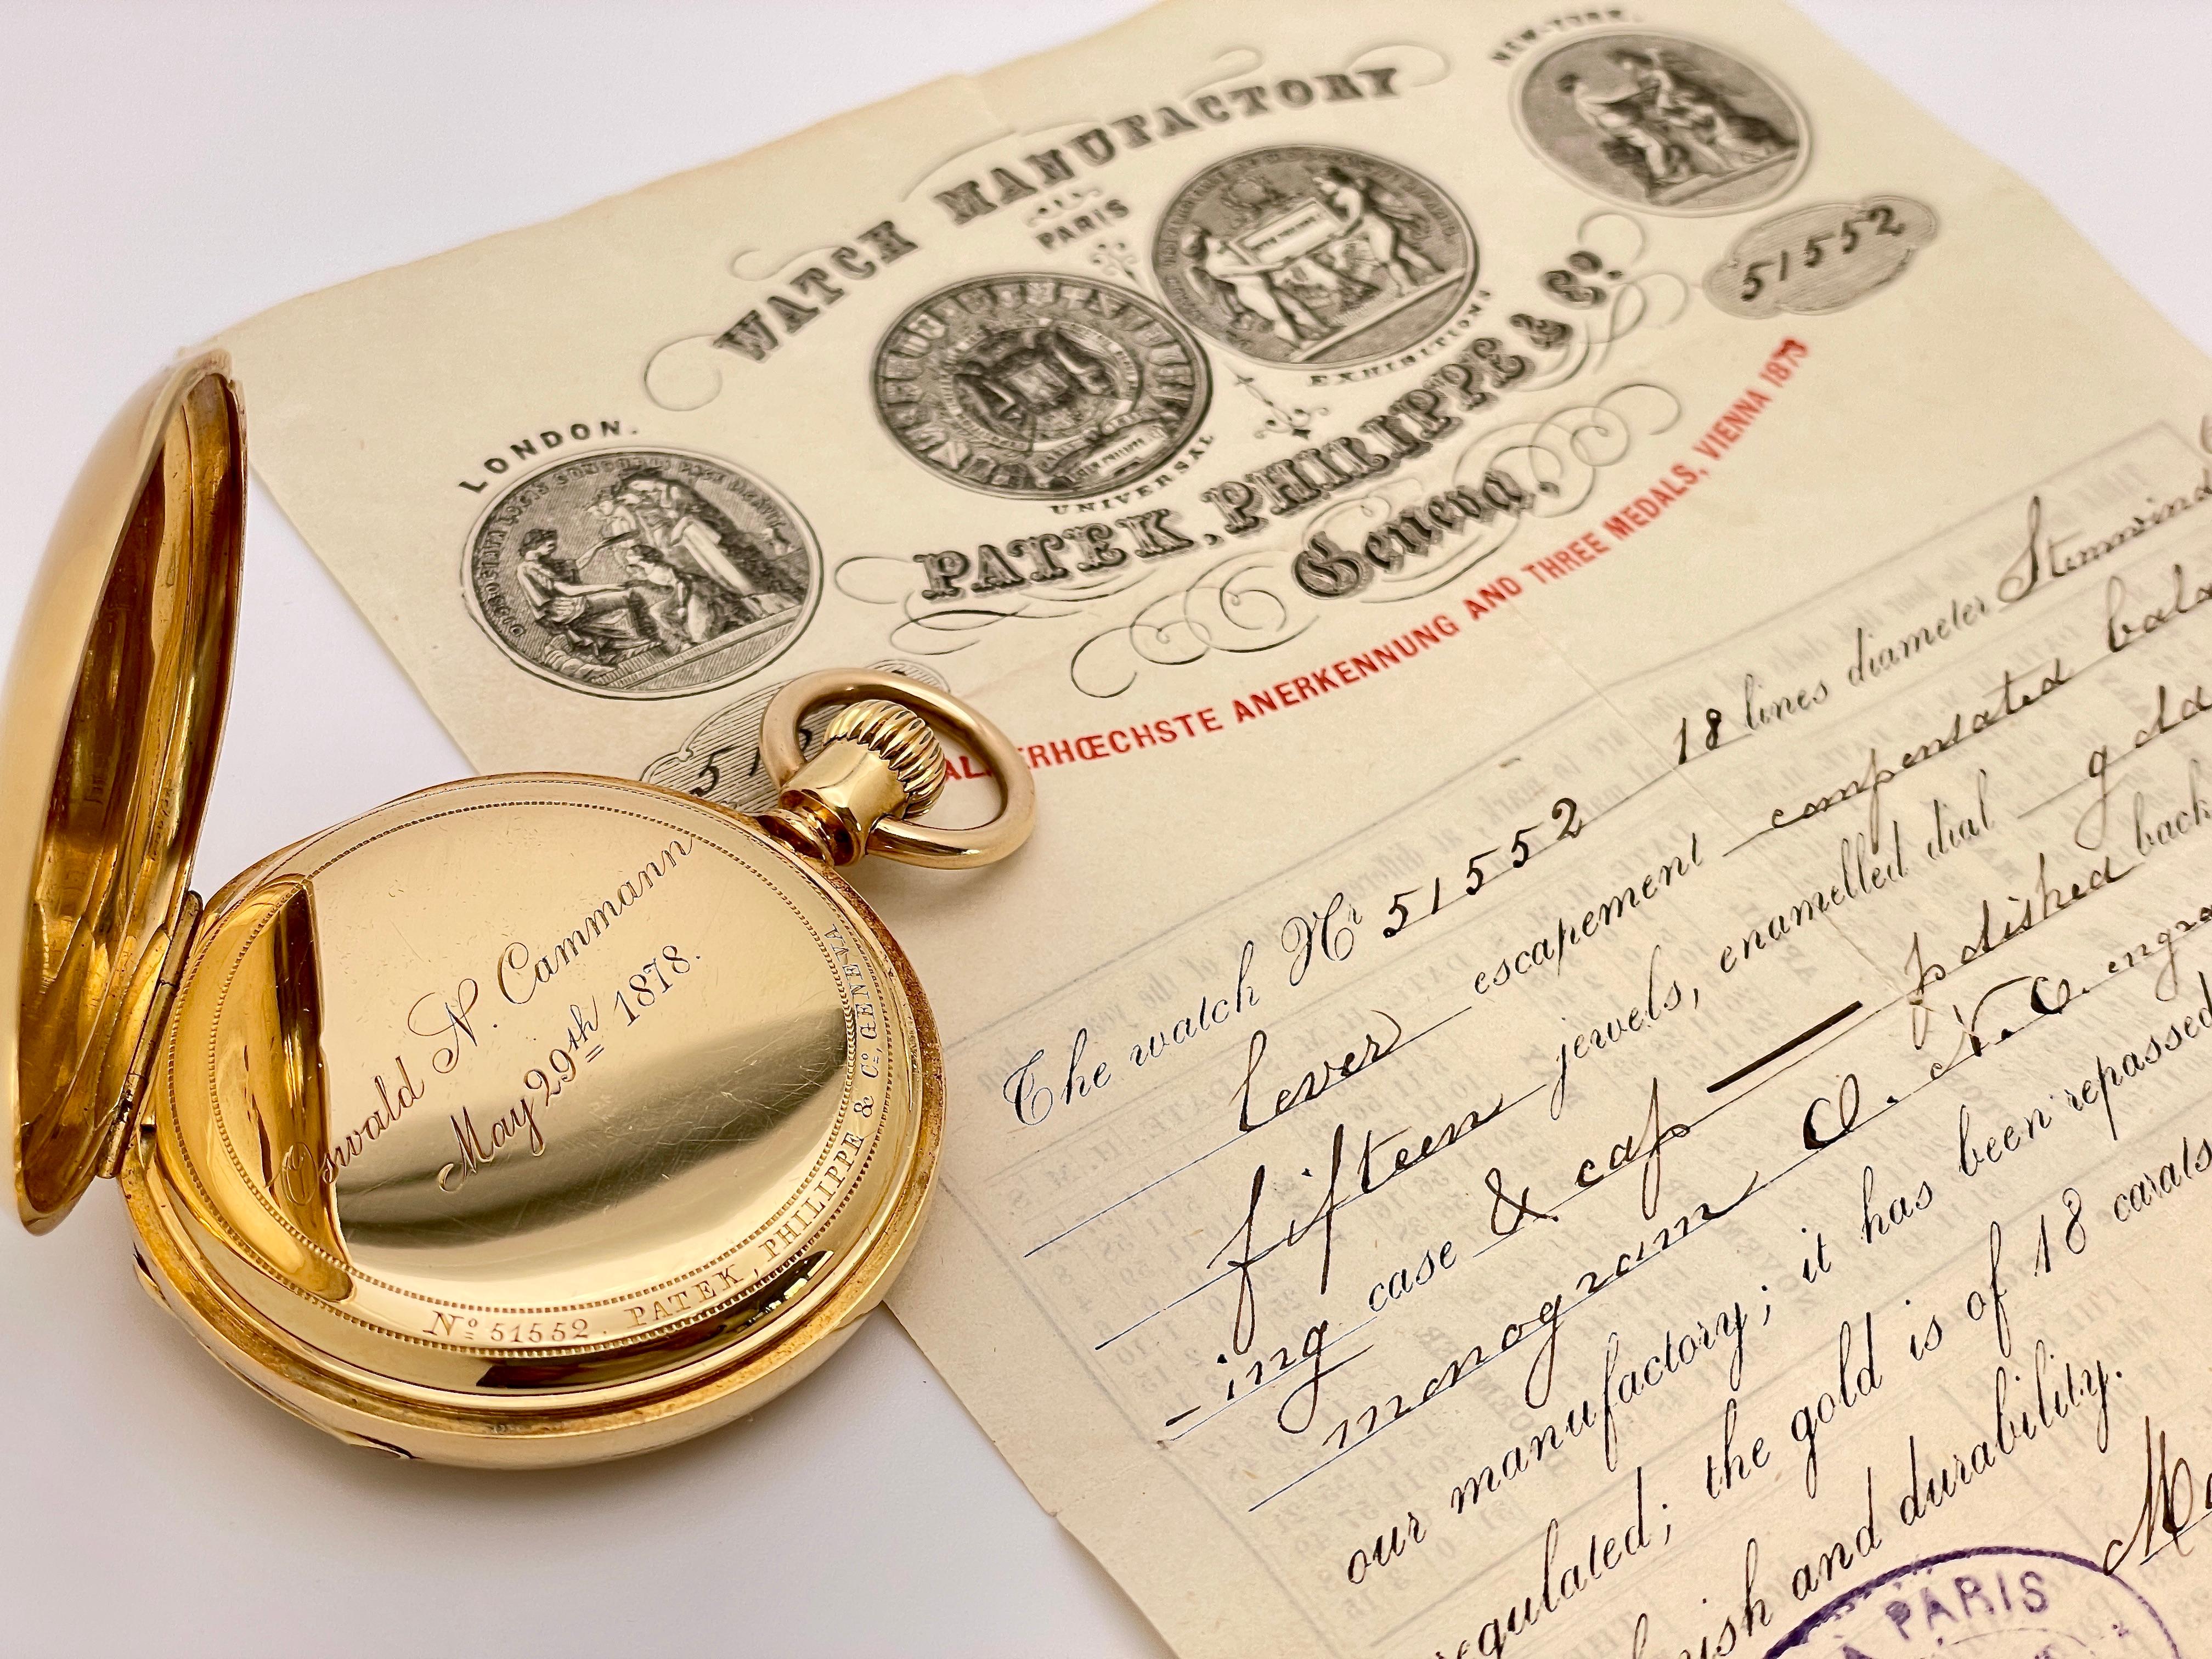 WATCH MANUFACTORY
NEW-YORK.
PARIS
LONDON.
UNIVERSAL
EXHIBITIONS
51552
PATEK, PHILIPPE & Co.
Geneva,
ALLERHŒCHSTE ANERKENNUNG AND THREE MEDALS, VIENNA 1873
The watch Nr 51552 18 lines diameter
lever escapement compensated
fifteen jewels, enamelled dial gold
ing case & cap — polished back
monogram O. N. C.
our manufactory; it has been repassed
regulated; the gold is of 18 carats
and durability.
PARIS
Oswald N. Cammann
May 29th 1878.
No 51552. PATEK, PHILIPPE & Co, GENEVA